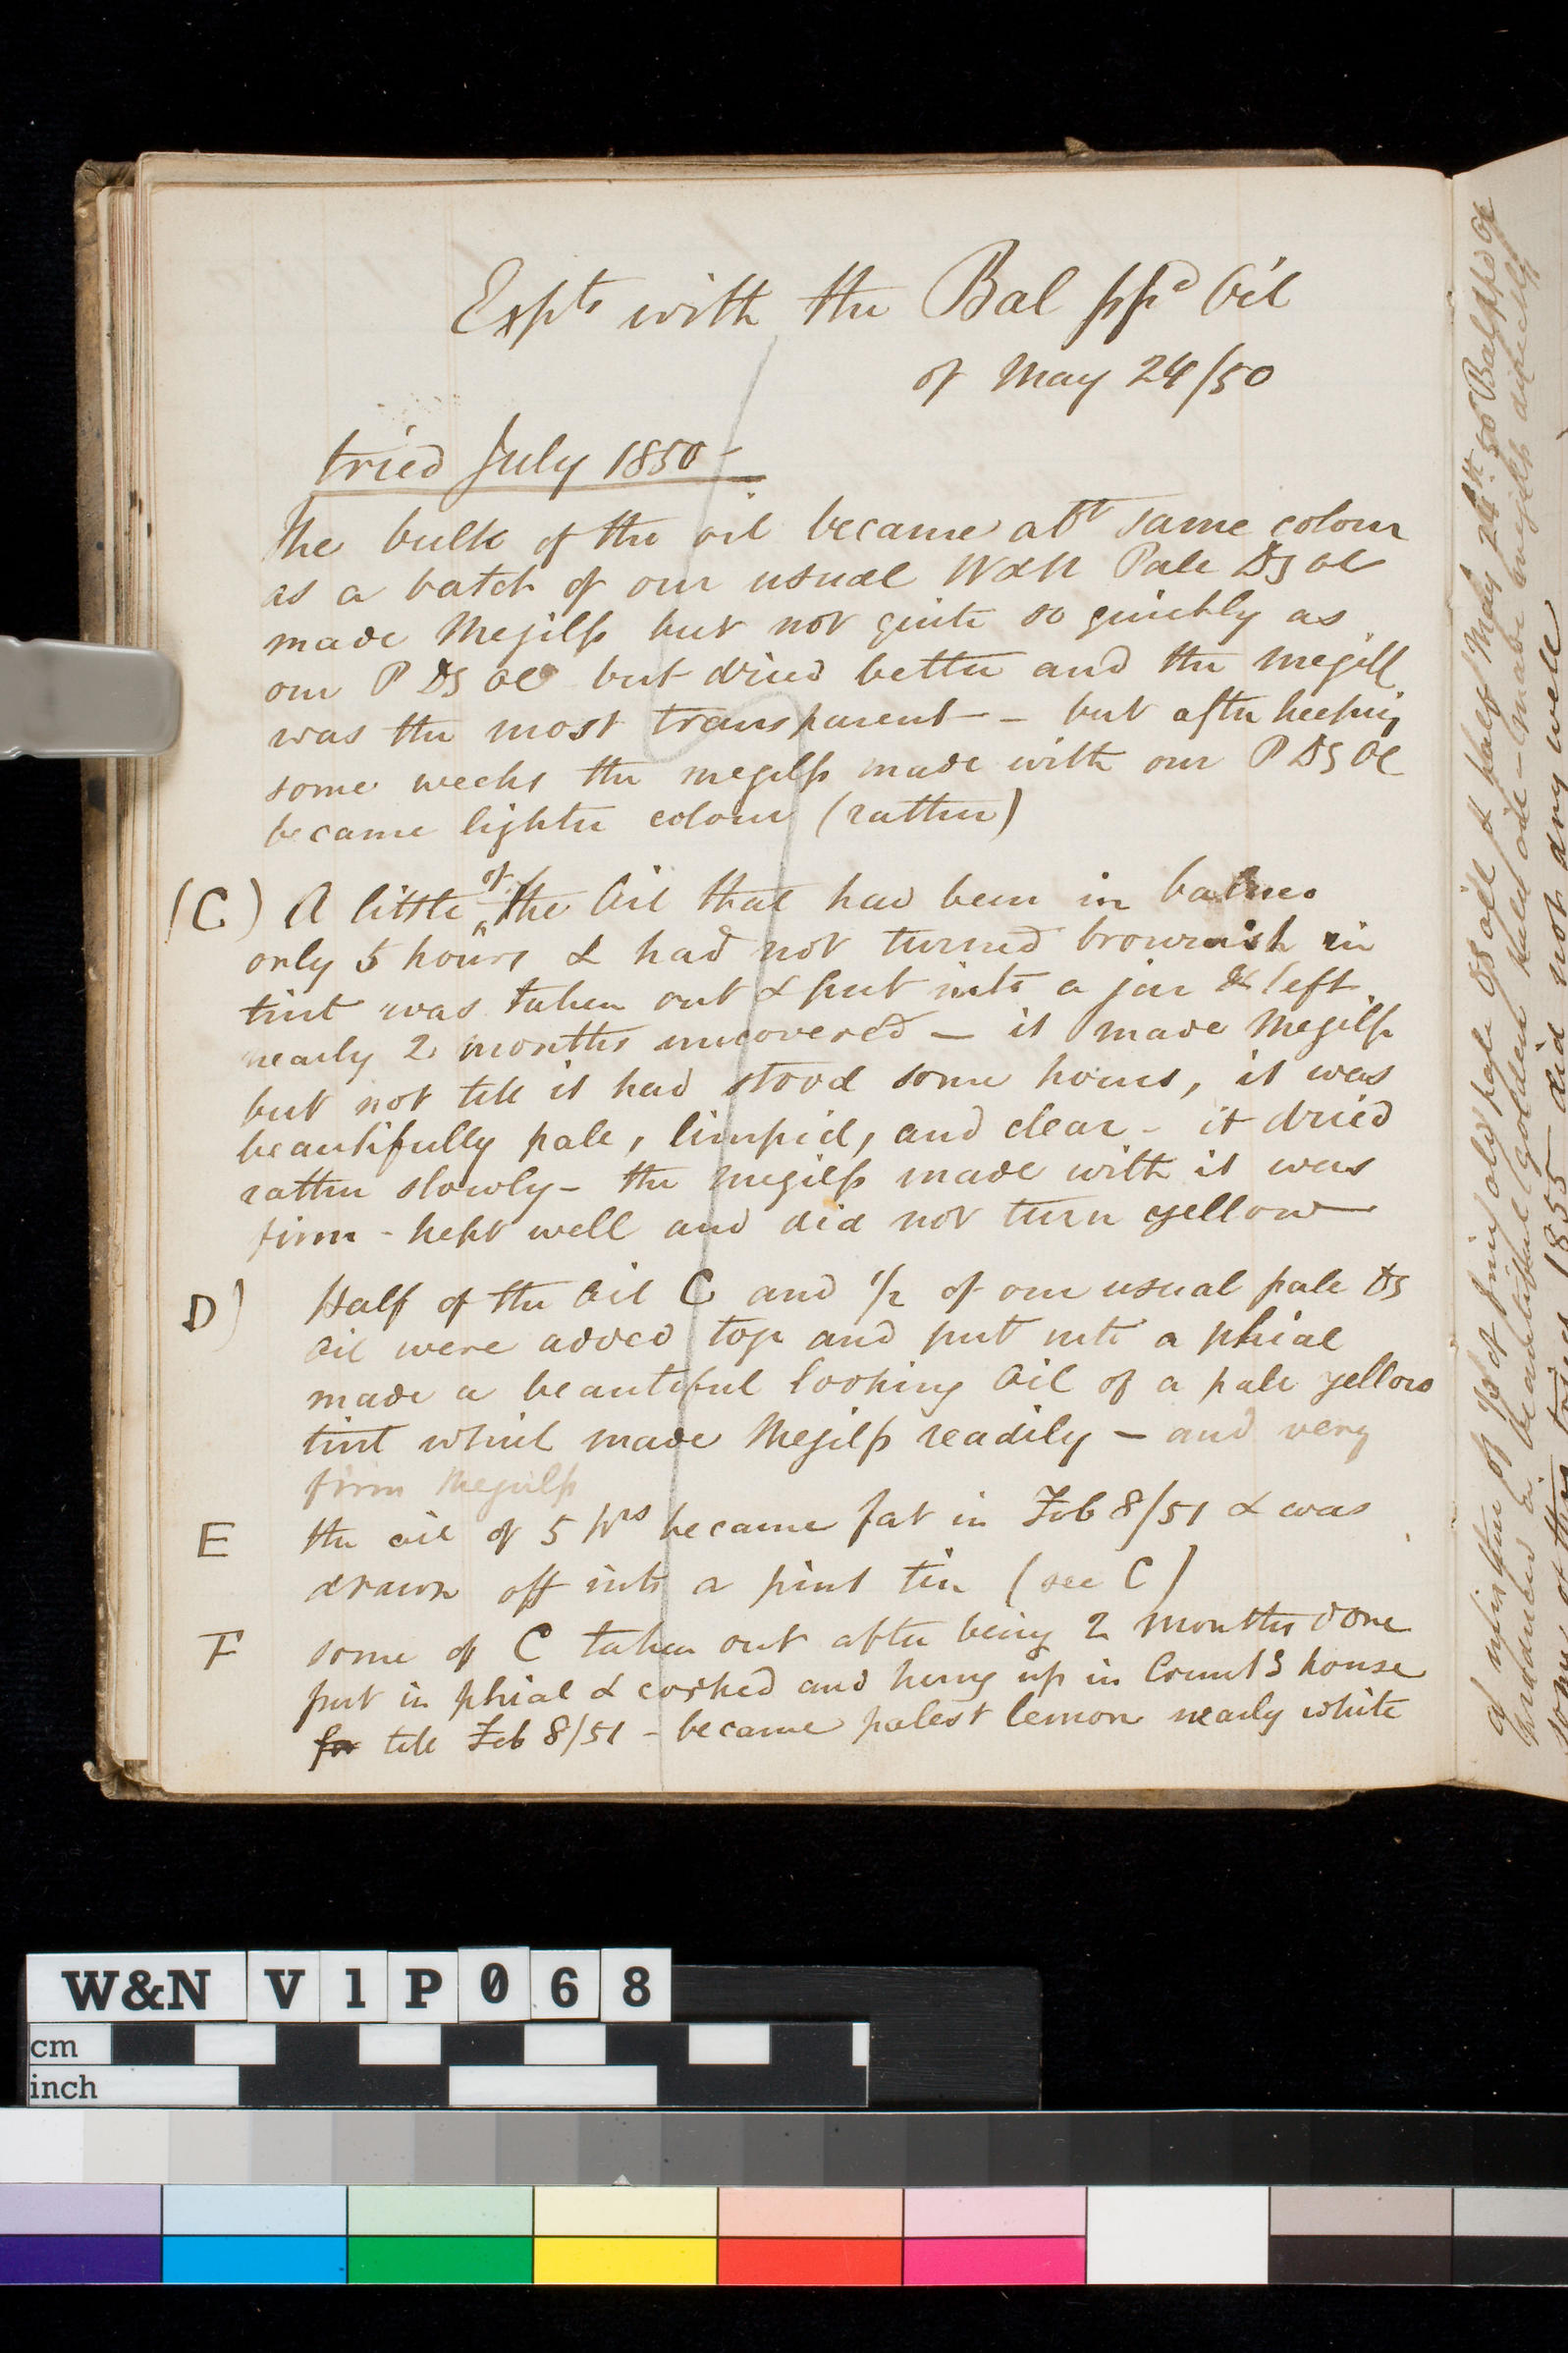 Expts with the Bal ppd Oil
of May 24/50
tried July 1850 -
The bulk of the oil became abt same colour
as a batch of our usual W&N Pale DG Ol
made Megilp but not quite so quickly as
our P DG Ol but dried better and the megill
was the most transparent - but after keeping
some weeks the megilp made with our P DG Ol
became lighter colour (rather)
(C) A little of the Oil that had been in balneo
only 5 hours & had not turned brownish in
tint was taken out & put into a jar & left
nearly 2 months uncovered - it made Megilp
but not till it had stood some hours, it was
beautifully pale, limpid, and clear - it dried
rather slowly - the megilp made with it was
firm - kept well and did not turn yellow
D) Half of the Oil C and 1/2 of our usual pale DG
Oil were added togr and put into a phial
made a beautiful looking Oil of a pale yellow
tint which made Megilp readily - and very
firm Megilp
E the oil of 5 hrs became fat in Feb 8/51 & was
drawn off into a pint tin (see C)
F some of C taken out after being 2 months done
put in phial & corked and hung up in Count G house
for till Feb 8/51 - became palest lemon nearly white
W&N V1P068
cm
inch